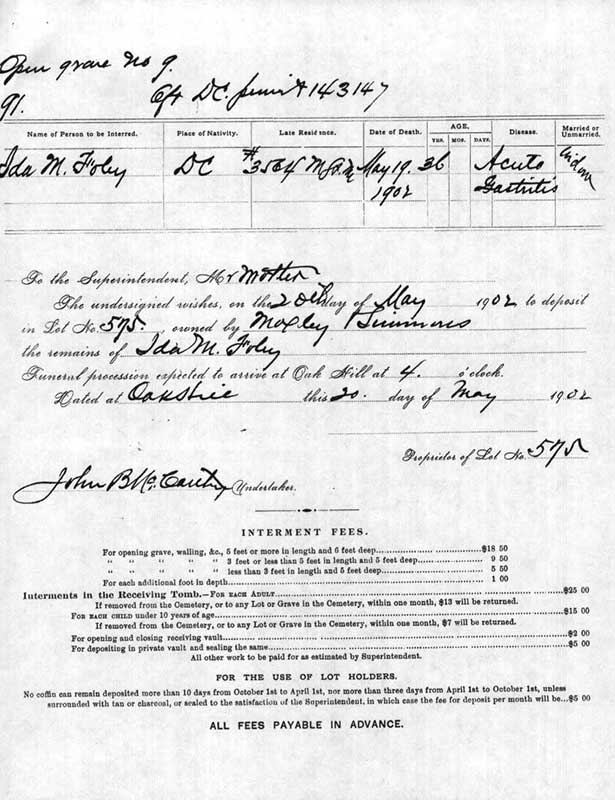 Open grave No 9.
91. Oft DC. permit 143147
Name of Person to be Interred. Place of Nativity. Late Residence. Date of Death. AGE. YRS. MOS. DAYS. Disease. Married or Unmarried.
Ida M. Foley DC # 3564 May 19. 36 Acute Widow
1902 Gastritis
To the Superintendent, Mr
The undersigned wishes, on the 20th day of May 1902 to deposit
in Lot No. 575, owned by Moxley Simmons
the remains of Ida M. Foley
Funeral procession expected to arrive at Oak Hill at 4. o'clock.
Dated at Oak Hill this 20. day of May 1902
Proprietor of Lot No. 575
John B Mc Undertaker.
INTERMENT FEES.
For opening grave, walling, &c., 5 feet or more in length and 6 feet deep $18 50
" " " " " 3 feet or less than 5 feet in length and 5 feet deep 9 50
" " " " " less than 3 feet in length and 5 feet deep 5 50
For each additional foot in depth 1 00
Interments in the Receiving Tomb.—FOR EACH ADULT $25 00
If removed from the Cemetery, or to any Lot or Grave in the Cemetery, within one month, $13 will be returned.
FOR EACH CHILD under 10 years of age $15 00
If removed from the Cemetery, or to any Lot or Grave in the Cemetery, within one month, $7 will be returned.
For opening and closing receiving vault $2 00
For depositing in private vault and sealing the same $5 00
All other work to be paid for as estimated by Superintendent.
FOR THE USE OF LOT HOLDERS.
No coffin can remain deposited more than 10 days from October 1st to April 1st, nor more than three days from April 1st to October 1st, unless
surrounded with tan or charcoal, or sealed to the satisfaction of the Superintendent, in which case the fee for deposit per month will be...$5 00
ALL FEES PAYABLE IN ADVANCE.